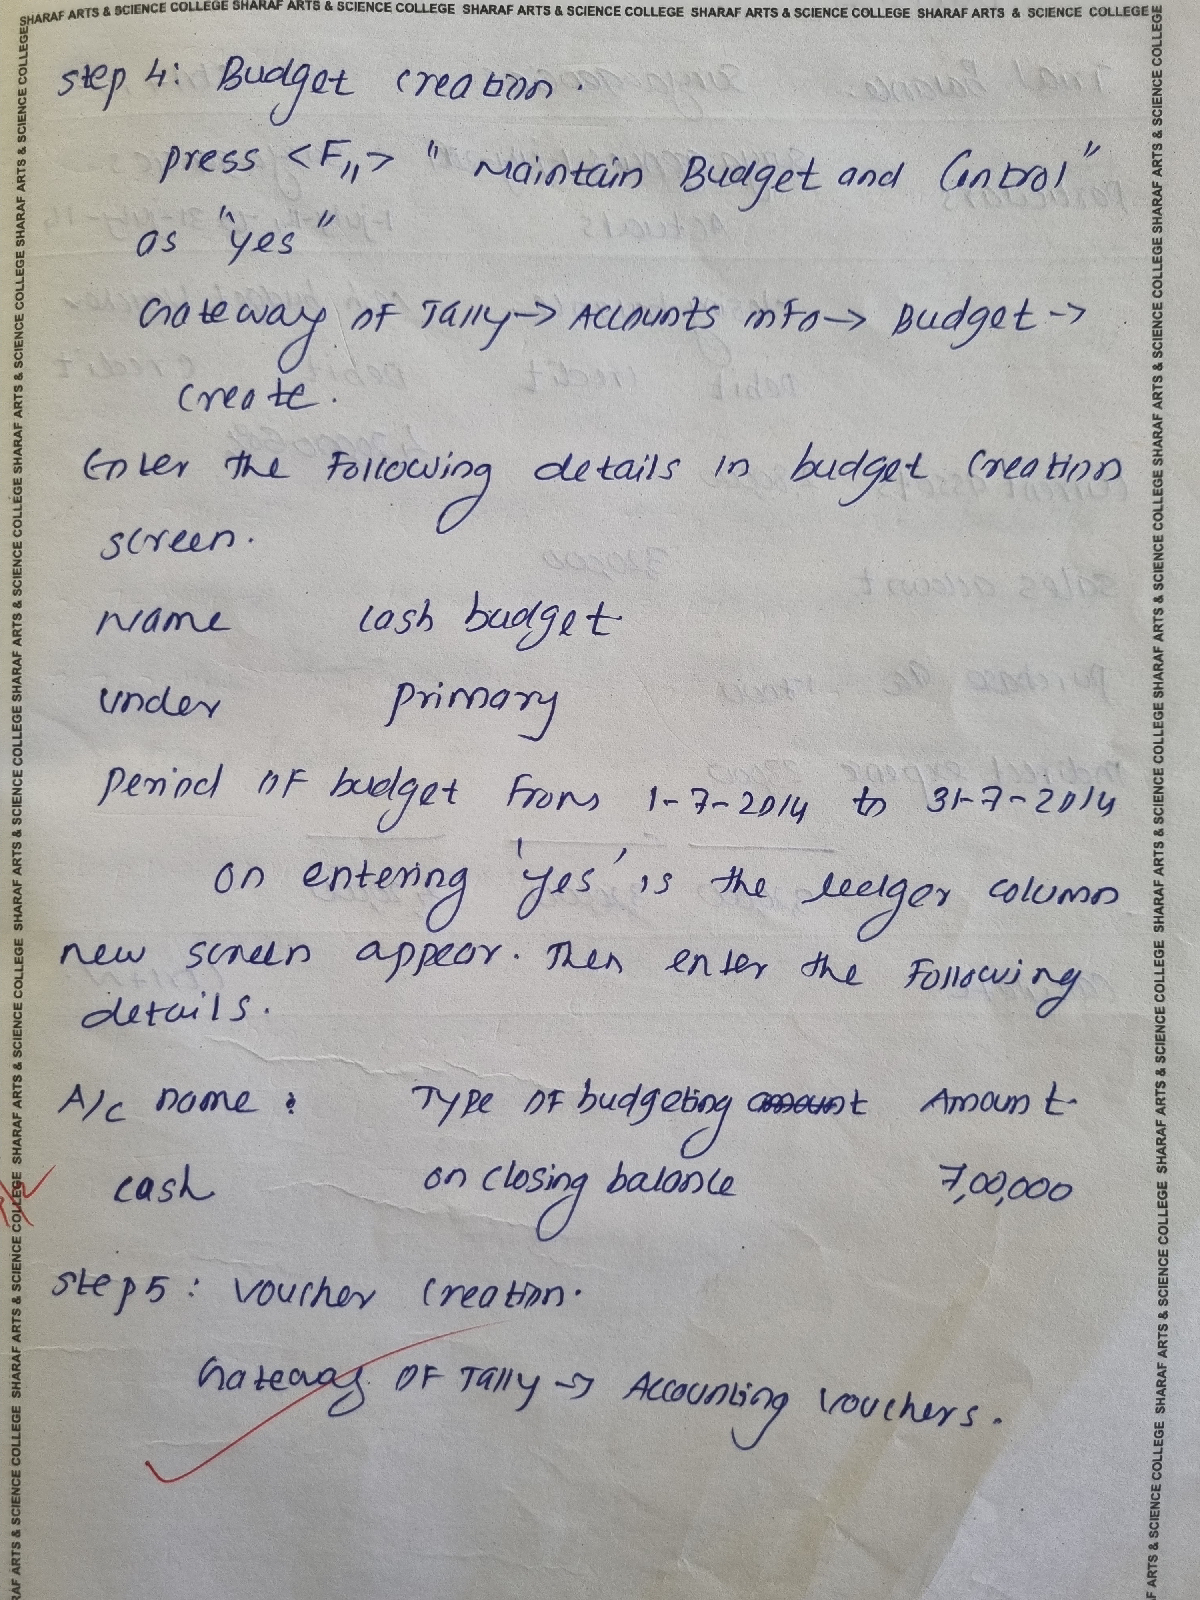 SHARAF ARTS & SCIENCE COLLEGE SHARAF ARTS & SCIENCE COLLEGE SHARAF ARTS & SCIENCE COLLEGE SHARAF ARTS & SCIENCE COLLEGE SHARAF ARTS & SCIENCE COLLEGE
step 4: Budget creation.
press <F11> "Maintain Budget and Control"
as "yes"
Gateway of Tally → Accounts info → Budget →
create.
Enter the Following details in budget creation
screen.
name cash budget
under primary
Period of budget From 1-7-2014 to 31-7-2014
on entering 'yes' is the ledger column
new screen appear. Then enter the Following
details.
A/c name : Type of budgeting amount Amount.
cash on closing balance 7,00,000
step 5 : Voucher creation.
Gateway of Tally → Accounting vouchers.